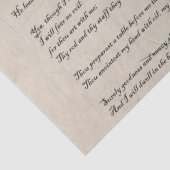 He lead
Yea, though I
I will fear no evil:
for thou art with me;
Thy rod and thy staff they
Thou preparest a table before me in
Thou anointest my head with oil; my
Surely goodness and mercy
And I will dwell in the h